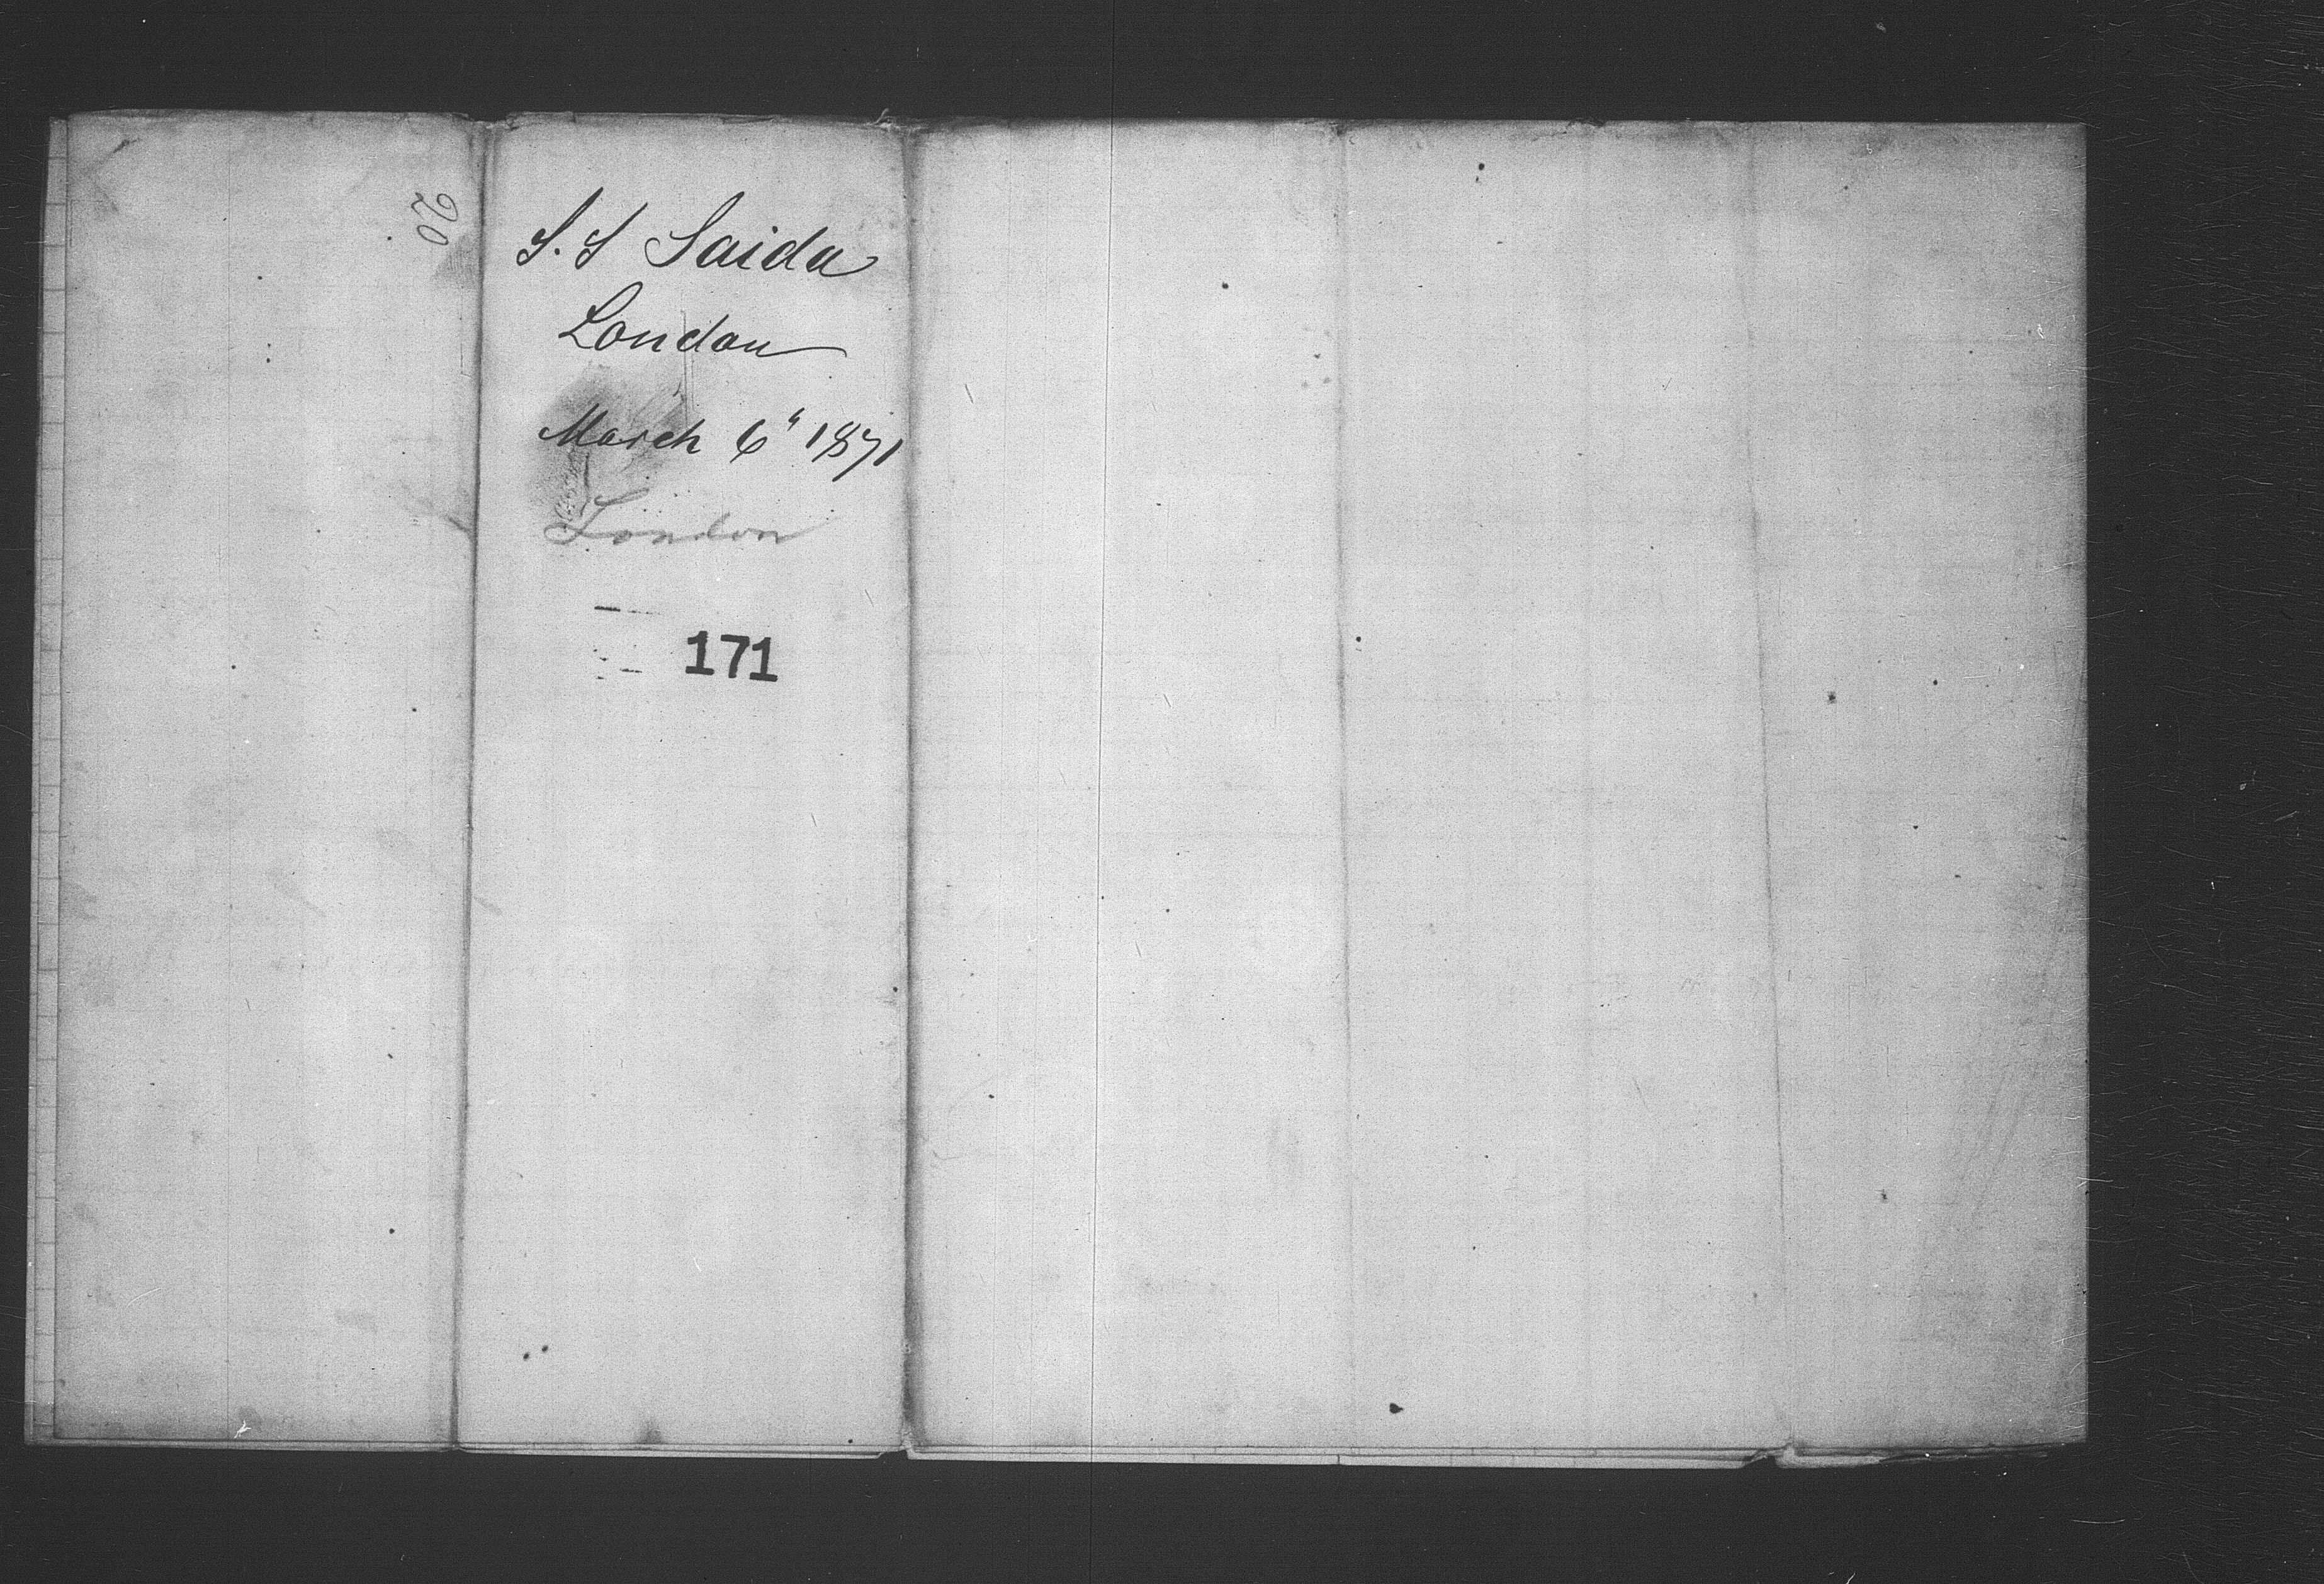 20
S.S Saida
London
March 6" 1871
London
171